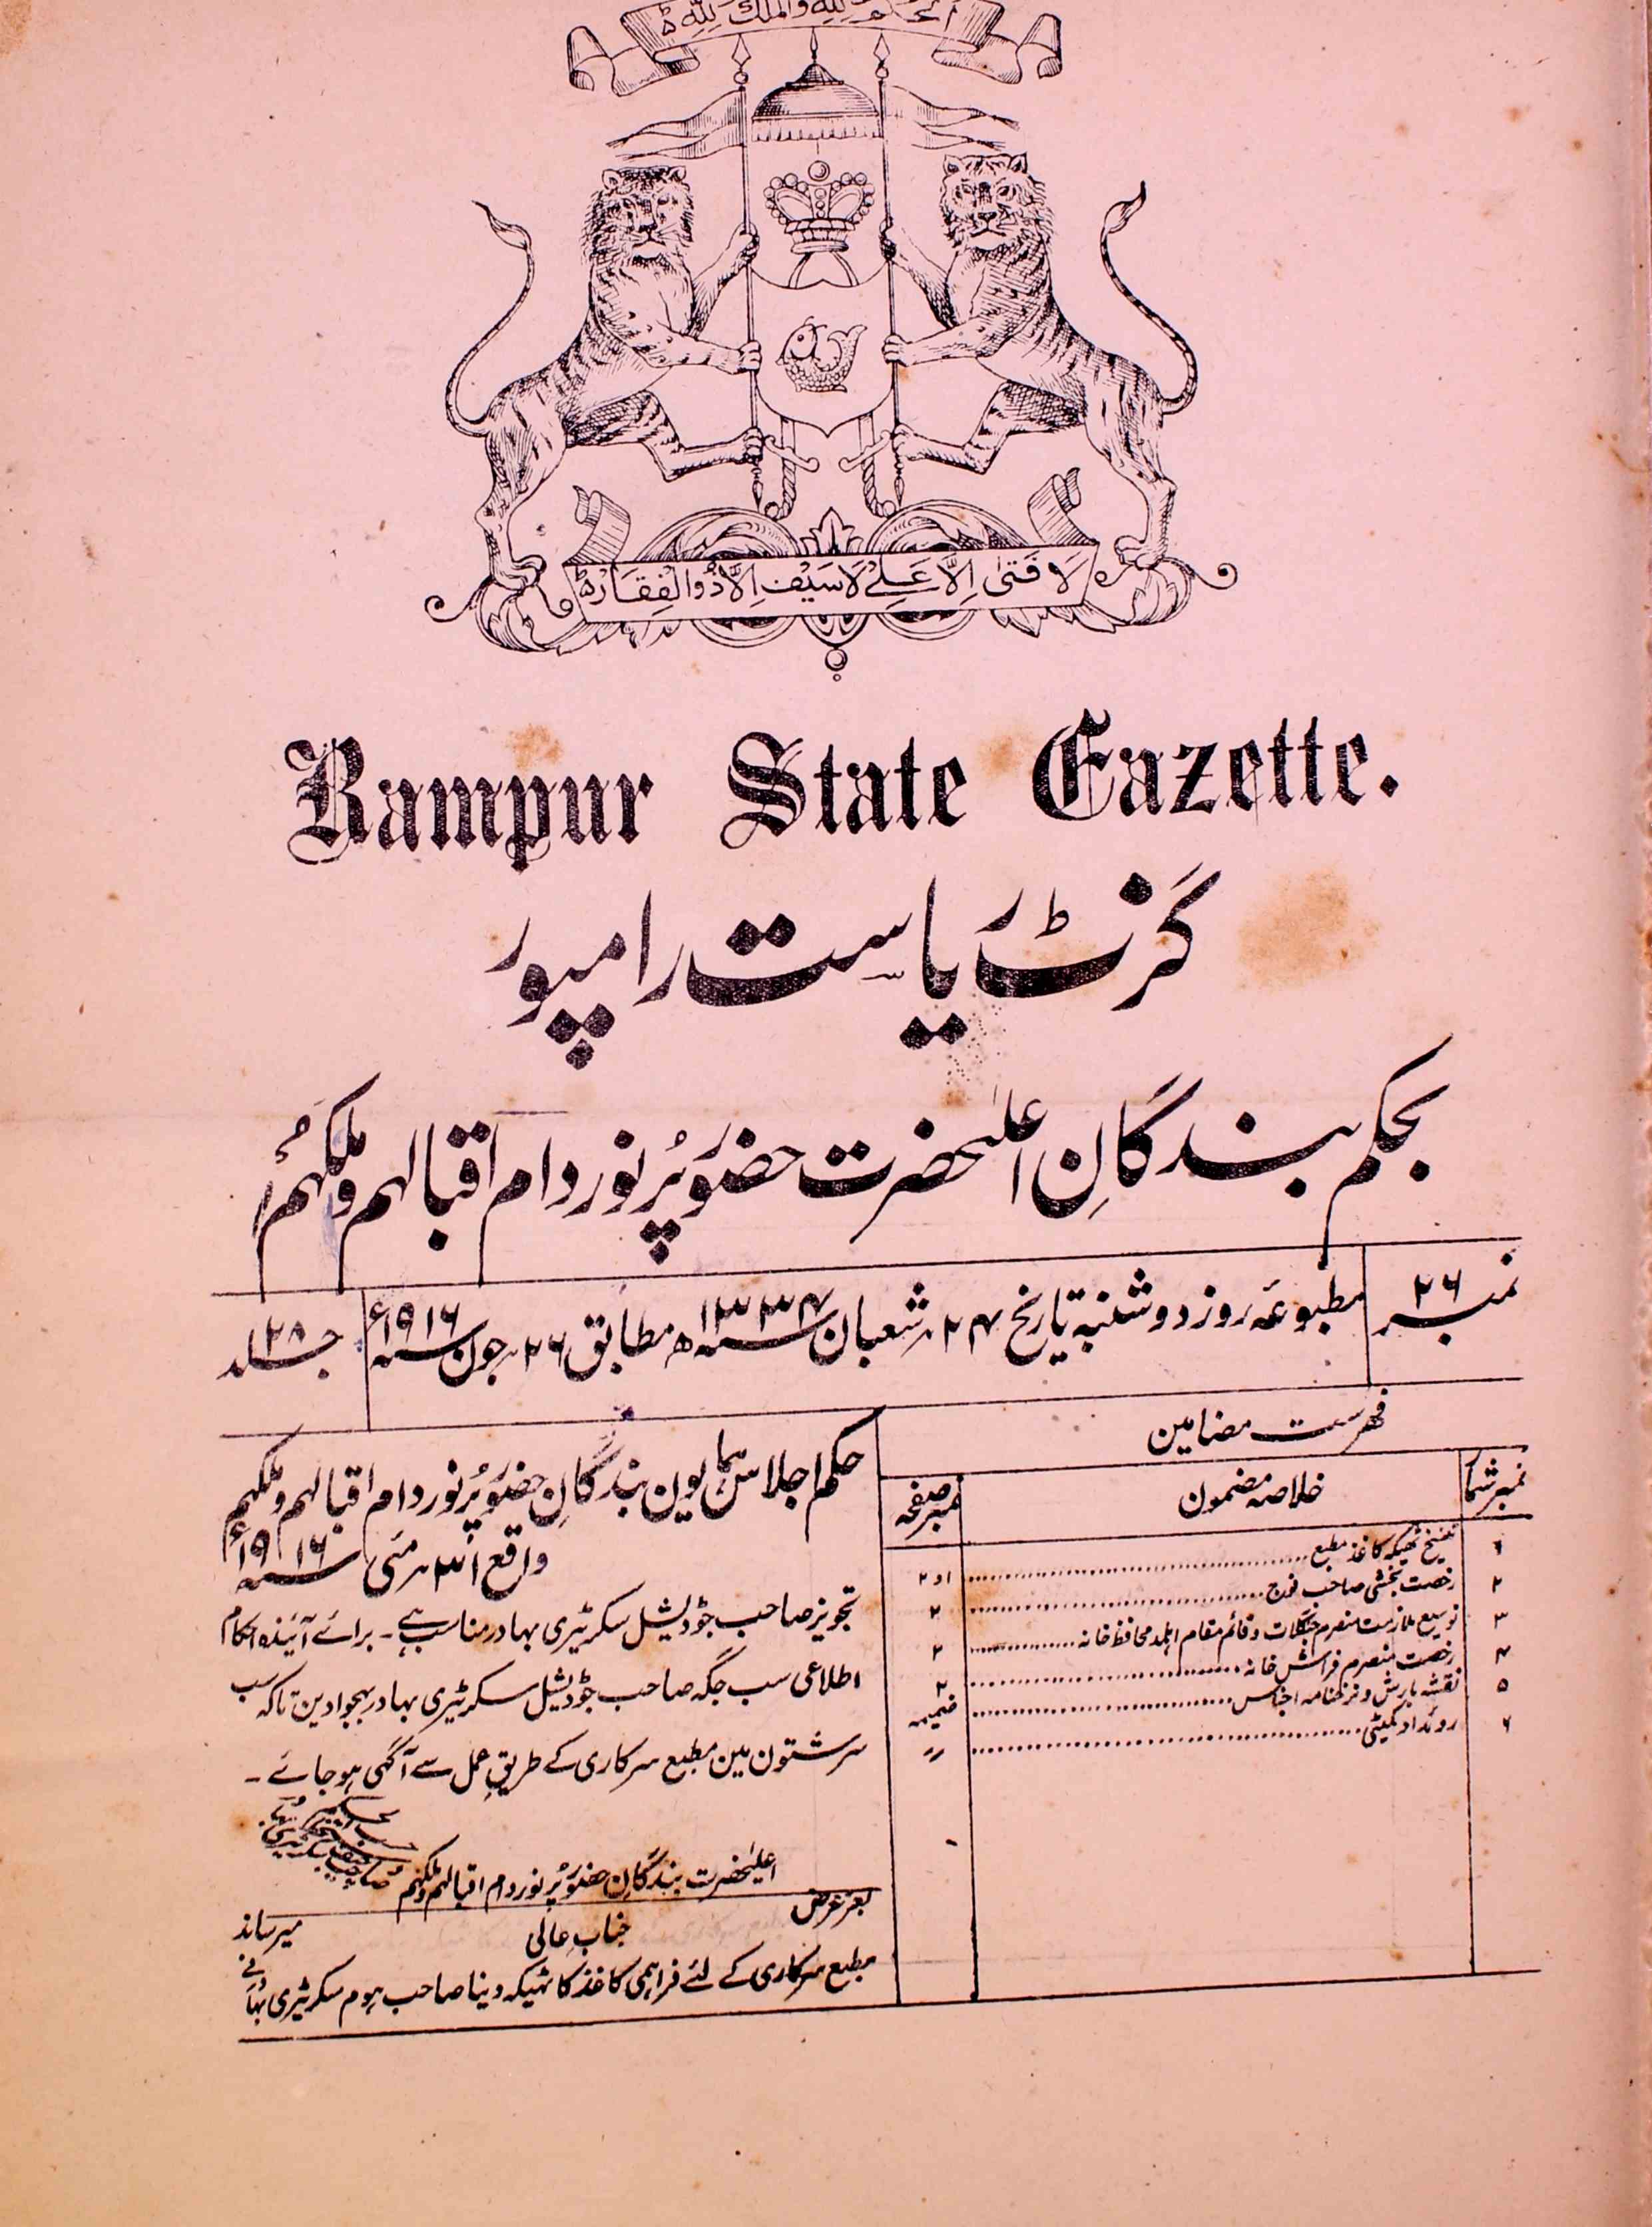 الحکم للہ والملک للہ
لَا فَتیٰ اِلَّا عَلِے لَا سَیْف اِلَّا ذُوالْفِقَار
Rampur State Gazette.
گزٹ ریاست رامپور
بحکم بندگانِ اعلیٰحضرت حضور پُرنور دام اقبالہم وملکہُم
نمبر ۲۶
مطبوعہ روز دوشنبہ تاریخ ۲۴ شعبان سنہ ۱۳۳۴ھ مطابق ۲۶ جون سنہ ۱۹۱۶ء
جلد ۲۸
فہرست مضامین
نمبرشمار خلاصہ مضمون نمبر صفحہ
۱ تنسیخ ٹھیکہ کاغذ مطبع ۱و۲
۲ رخصت بخشی صاحب فوج ۲
۳ توسیع ملازمت منصرم جنگلات و قائم مقام اہلمد محافظ خانہ ۲
۴ رخصت منصرم فراش خانہ ۲
۵ نقشہ بارش و نرخنامہ اجناس ضمیمہ
۶ روئداد کمیٹی 〃
حکم اجلاس ہمایون بندگانِ حضور پُرنور دام اقبالہم وملکہم
واقع ۳۱ مئی سنہ ۱۹۱۶ء
تجویز صاحب جوڈیشل سکرٹیری بہادر مناسب ہے ۔ برائے آئندہ احکام
اطلاعی سب جگہ صاحب جوڈیشل سکرٹیری بہادر بھجوادین تاکہ سب
سرشتون مین مطبع سرکاری کے طریق عمل سے آگہی ہو جائے ۔
اعلیٰحضرت بندگانِ حضور پُرنور دام اقبالہم وملکہم
بعز عرض
جناب عالی
میرساند
مطبع سرکاری کے لئے فراہمی کاغذ کا ٹھیکہ دینا صاحب ہوم سکرٹیری بہادر نے